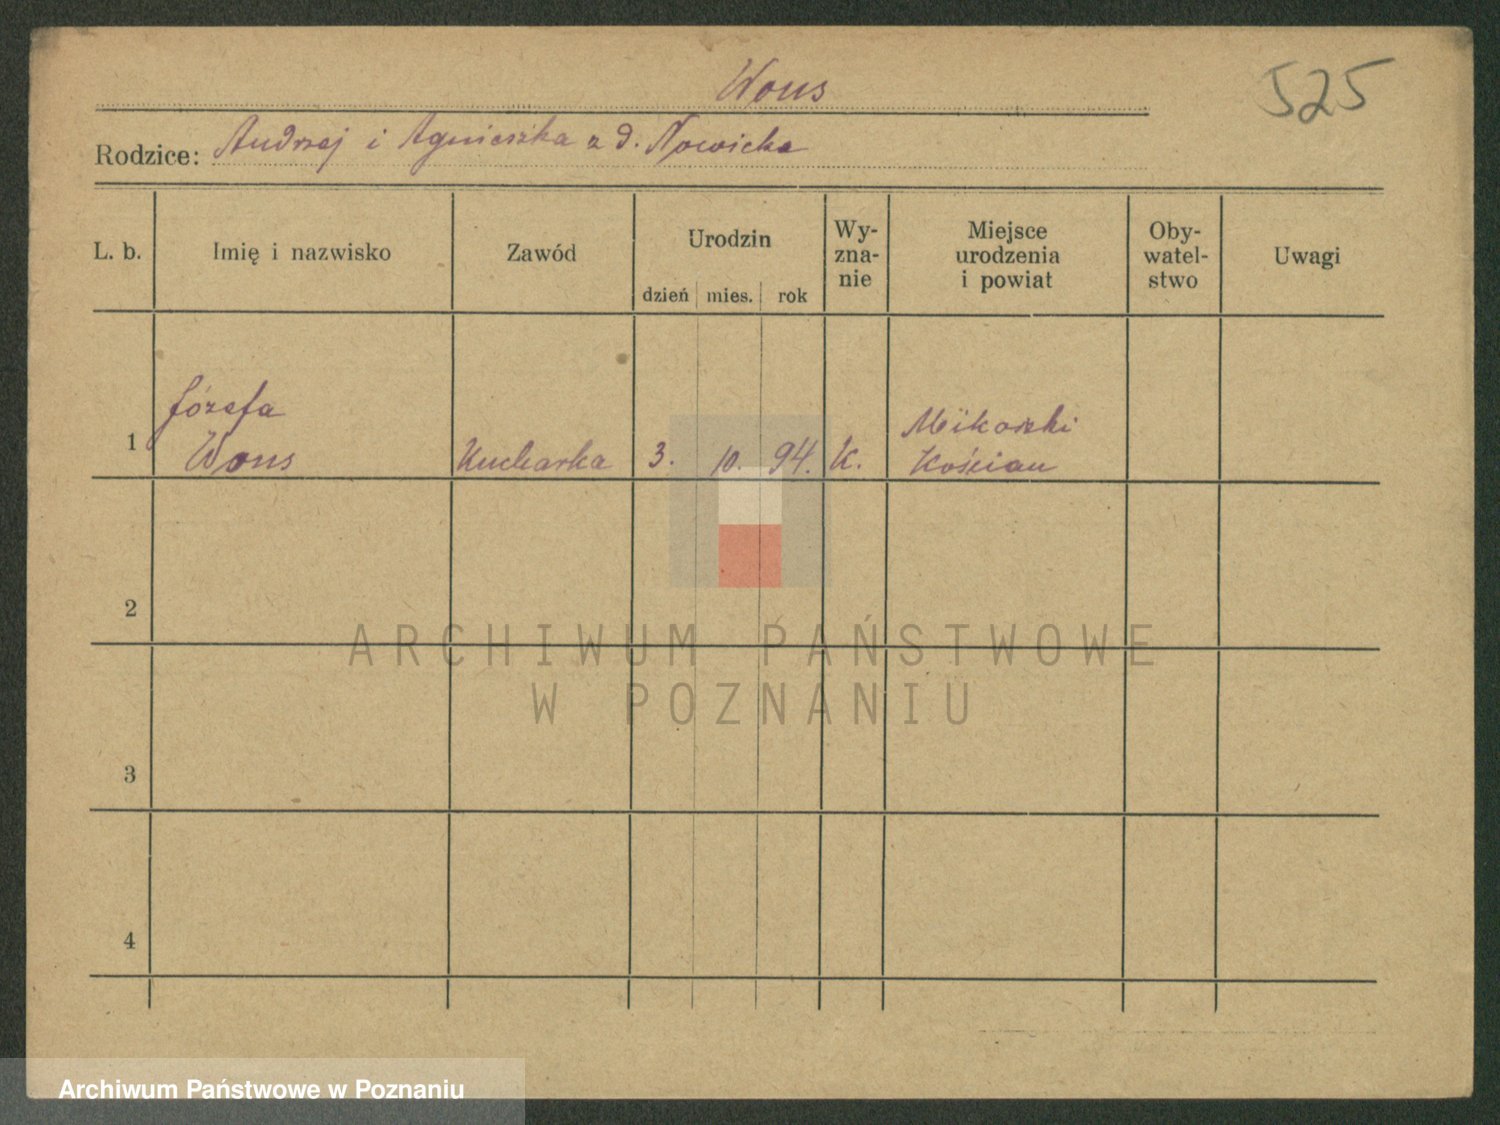 Wons
525
Rodzice: Andrzej i Agnieszka z d. Nowicka
L. b.
Imię i nazwisko
Zawód
Urodzin
dzień mies. rok
Wy-
zna-
nie
Miejsce
urodzenia
i powiat
Oby-
watel-
stwo
Uwagi
1
Józefa
Wons
Kucharka
3. 10. 94.
K.
Mikoszki
Kościan
2
3
4
ARCHIWUM PAŃSTWOWE
W POZNANIU
Archiwum Państwowe w Poznaniu